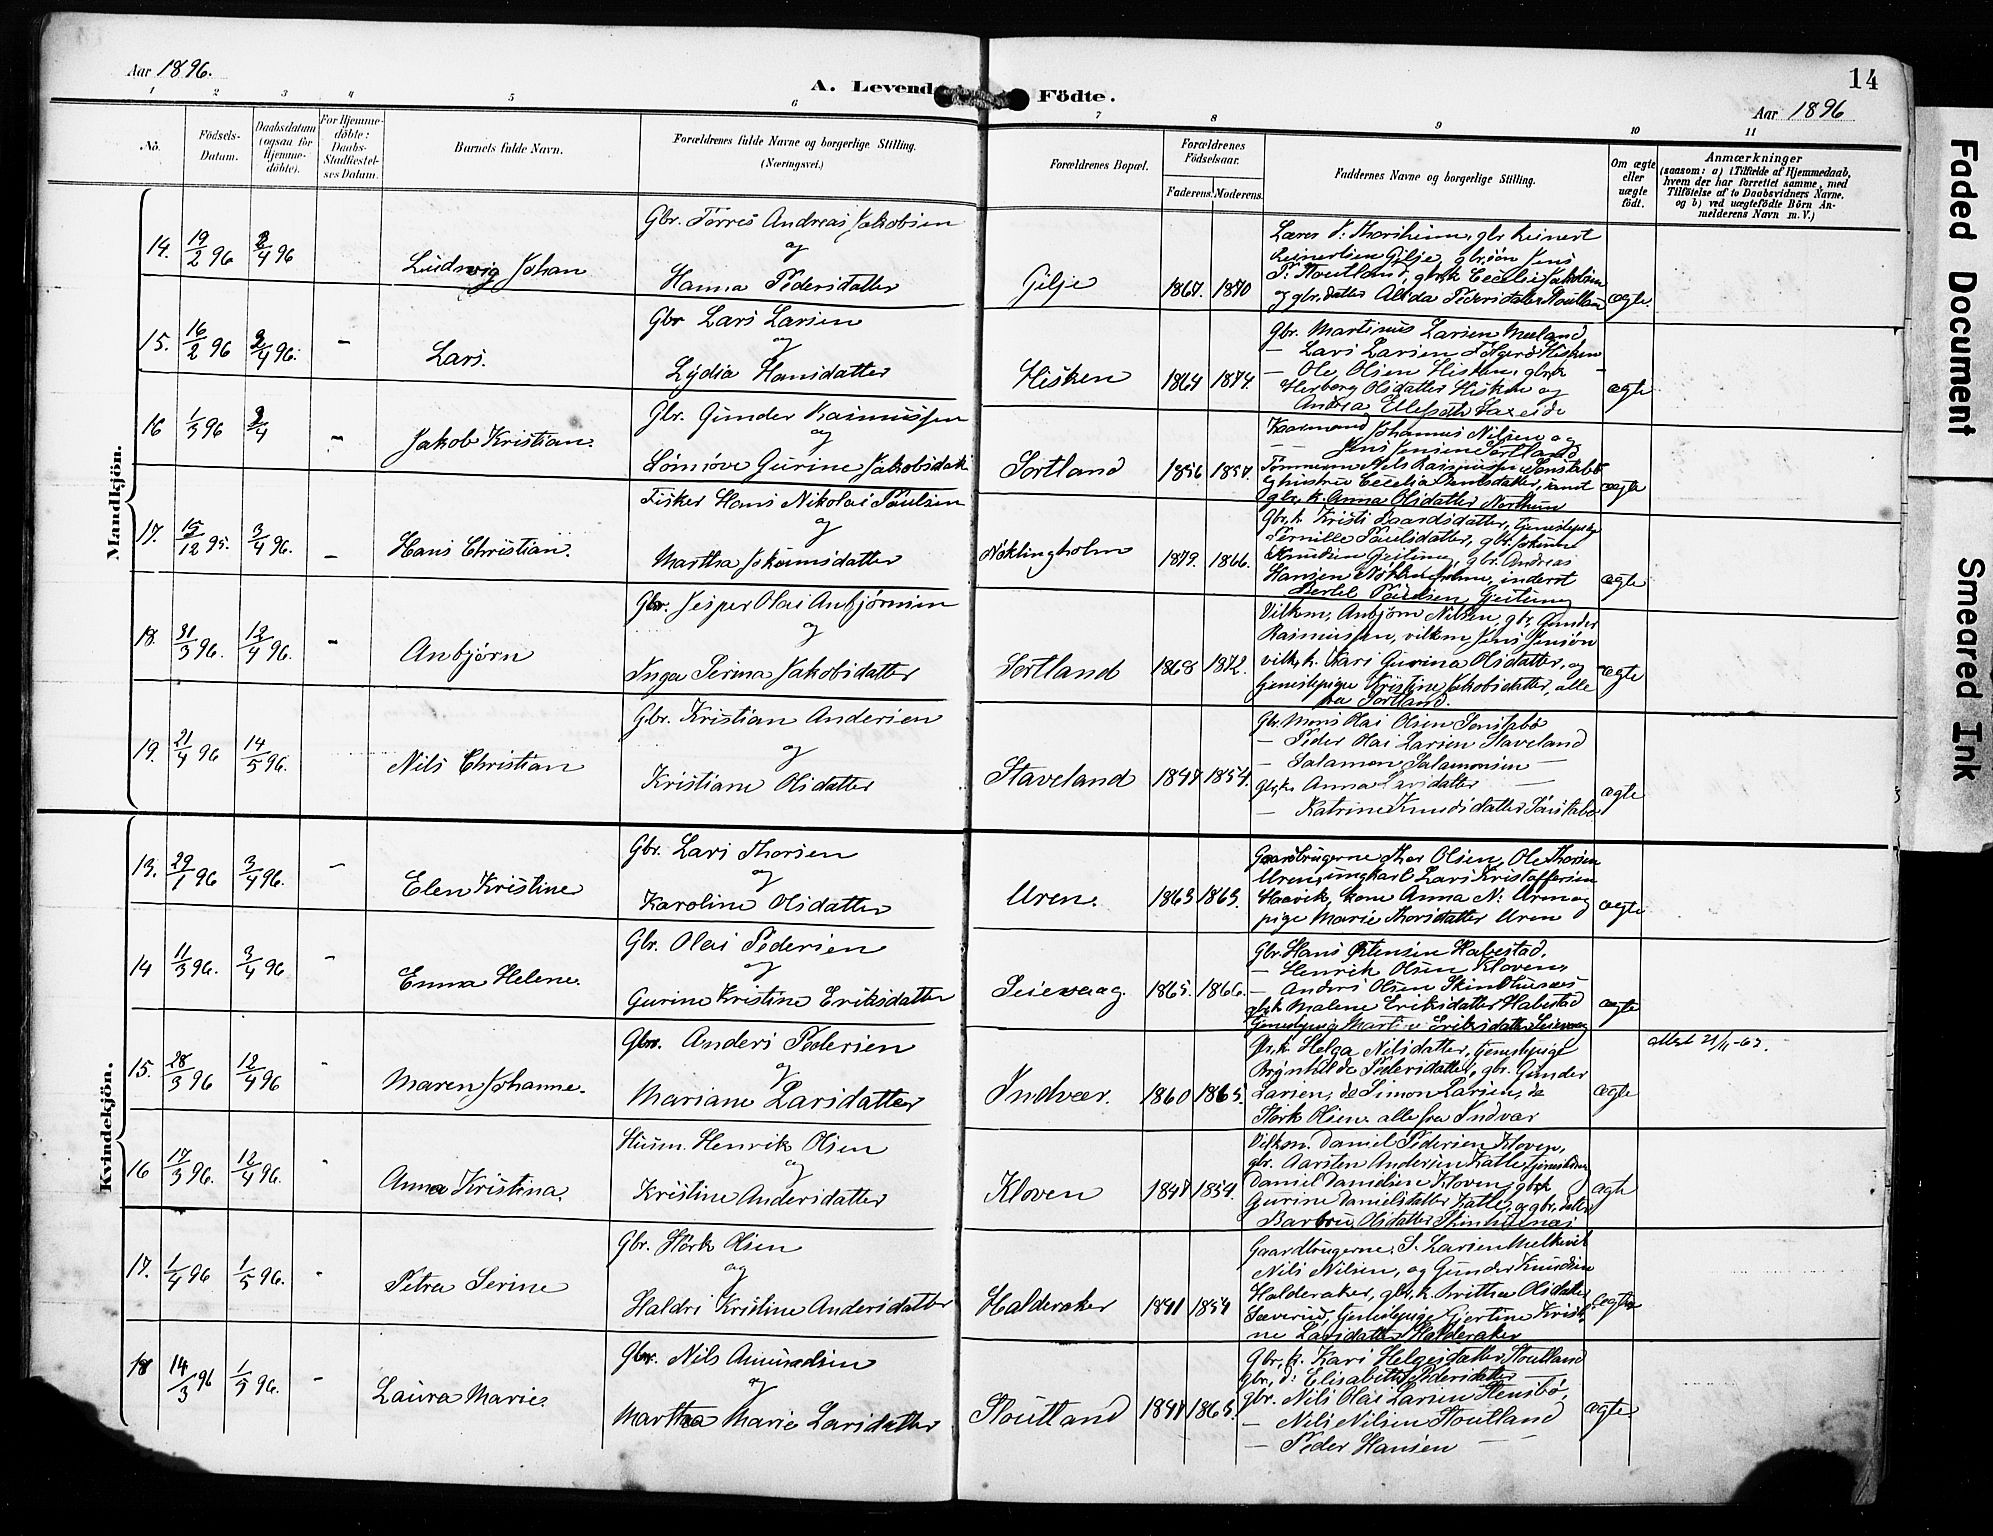 Aar 1896.
A. Levende Födte.
14
Aar 1896
1 2 3 4 5 6 7 8 9 10 11
No.
Födsels-
Datum.
Daabsdatum
(ogsaa for
Hjemme-
döbte).
For Hjemme-
döbte:
Daabs-
Stadfæstel-
ses Datum.
Barnets fulde Navn.
Forældrenes fulde Navne og borgerlige Stilling.
(Næringsvei.)
Forældrenes Bopæl.
Forældrenes
Födselsaar.
Faderens. Moderens.
Faddernes Navne og borgerlige Stilling.
Om ægte
eller
uægte
födt.
Anmærkninger
(saasom: a) i Tilfælde af Hjemmedaab,
hvem der har forrettet samme, med
Tilföielse af to Daabsvidners Navne,
og b) ved uægtefödte Börn An-
melderens Navn m. V.)
Mandkjön.
14. 19/2 96 2/4 96 Ludwig Johan
Gbr. Torres Andreas Jakobsen
og
Hanna Pedersdatter
Gilje 1867. 1870
Reinertsen Gilje, gbr.søn Jens
P. Stoutland, gbrk Cecelie Jakobsen
og gbr.datter Alida Pedersdatter Stoutland
ægte.
15. 16/2 96 2/4 96. - Lars.
Gbr Lars Larsen
og
Lydia Hansdatter
Hisken 1864 1874.
Gbr. Martinus Larsen Meeland
- Lars Larsen Hisken
- Ole Olsen Hisken, gbrk
Herborg Olsdatter Hisken og
ægte
16 1/3 96 2/4 - Jakob Kristian.
Gbr. Gunder Rasmussen
og
Sørnøve Gurine Jakobsdatt
Sortland 1856 1857.
Johannes Nilsen og
- Jens Jensen Sortland
gbr. k. Anna Olsdatter Northun
ægte
17. 15/12 95. 3/4 96. - Hans Christian.
Fisker Hans Nikolai Paulsen
og
Martha Jokumsdatter
Nøklingholm 1879. 1866.
Gbr. k. Kristi Baardsdatter, tjenestepige
Pernille Paulsdatter, gbr. Jokum
Knudsen Geitung, gbr. Andreas
Hansen Nøklingholm, inderst
Bertel Paulsen, Geitung
ægte
18. 31/3 96. 12/4 96. - Anbjørn
Gbr. Jesper Olai Anbjørnsen
og
Inga Serina Jakobsdatter
Sortland 1868 1872.
Vilkm. Anbjørn Nilsen, gbr. Gunder
Rasmussen, vilkm Jens Jensøn
vilk. k. Kari Gurina Olsdatter, og
tjenestepige Kristine Jakobsdatter, alle
fra Sortland.
ægte
19. 21/4 96 14/5 96. Nils Christian
Gbr. Kristian Andersen
og
Kristiane Olsdatter
Staveland 1847 1854.
Gbr. Mons Olai Olsen Sonstabø
- Peder Olai Larsen Staveland
- Salamon Salamonsen -
Gbr.k. Anna Larsdatter -
- Katrine Knudsdatter Sønstabø
ægte
Kvindekjön.
13. 29/1 96 3/4 96. - Elen Kristine
Gbr. Lars Thorsen
og
Karoline Olsdatter
Uren. 1863 1863.
Gaardbrugerne Thor Olsen, Ole Thorsen
Uren, ungkarl Lars Kristoffersen
Haavik, kone Anna N. Uren og
pige Marie Thorsdatter Uren
ægte
14 11/3 96. 3/4 96 - Emma Helene.
Gbr. Olai Pedersen
og
Gurine Kristine Eriksdatter
Seievaag. 1865. 1866.
Gbr. Hans Østensen Habestad,
- Henrik Olsen Kloven,
- Anders Olsen Skindhusnes
gbrk Malene Eriksdatter Habestad
tjenestepige Martin Eriksdatter Seievaag
ægte
15. 28/3 96 12/4 96 Maren Johanne.
Gbr. Anders Pedersen
og
Mariane Larsdatter
Indvær. 1860 1865.
Gbr.k Helga Nilsdatter, tjenestepige
Brønhilde Pedersdatter, gbr. Gunder
Larsen, do Simon Larsen, do
Størk Olsen. alle fra Indvær
ægte
16 17/3 96. 12/4 96. Anna Kristina.
Husm. Henrik Olsen
og
Kristine Andersdatter
Kloven 1847 1854.
Vilkm. Daniel Pedersen Kloven,
gbr. Aarsten Andersen Katle,
Daniel Danielsen Kloven, gbrk
Gurine Danielsdatter Katle, og gbr. datter
Barbru Olsdatter Skindhusnes
ægte
17. 1/4 96 1/5 96. - Petra Serine
Gbr. Størk Olsen
og
Haldri Kristine Andersdatter
Halderaker 1841 1854
Gaardbrugerne, S. Larsen Melkevik
Nils Nilsen, og Gunder Knudsen
Halderaker, gbr. k. Brittha Olsdatter
Sæverud, tjenestepige Gjertine Kristi-
ne Larsdatter Halderaker
ægte
18 14/3 96 1/5 96. - Laura Marie.
Gbr. Nils Amundsen
og
Martha Marie Larsdatter
Stoutland 1847 1865.
Gbr. k. Kari Helgesdatter Stoutland
gbr. d: Elisabeth Pedersdatter -
gbr. Nils Olai Larsen Stensbø,
- Nils Nilsen Stoutland
- Peder Hansen -
ægte.
Faded Document
Smeared Ink